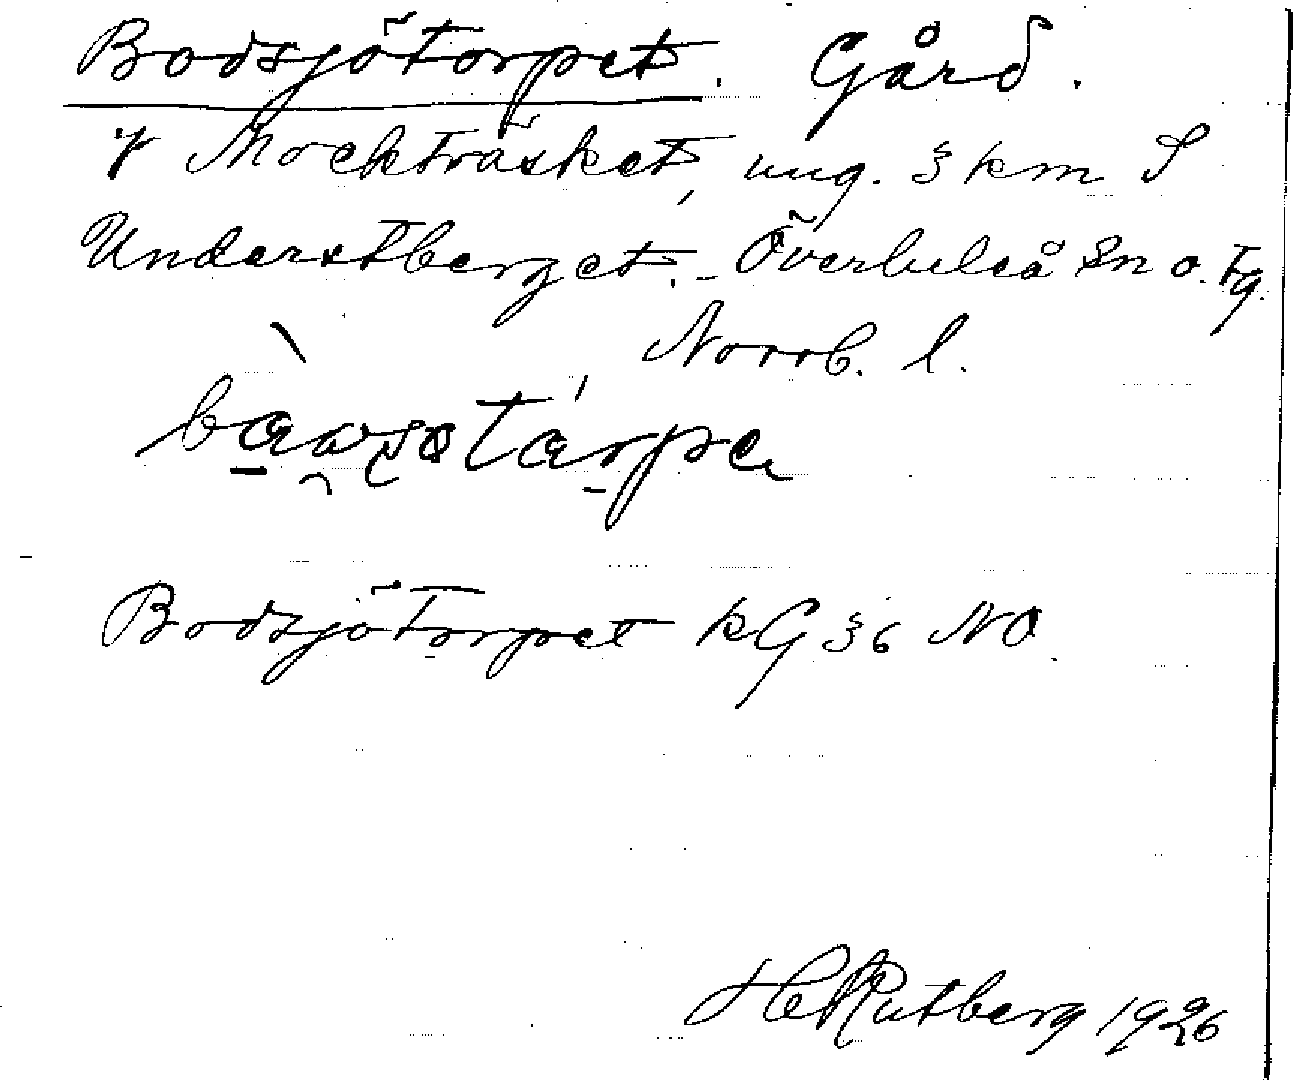 Bodsjötorpet. Gård.
V Mockträsket, ung. 3 km S
Understberget. - Överluleå Sn o. Tg.
Norrb. l.
Bodsjötorpet kG 36 NO.
HRutberg 1926